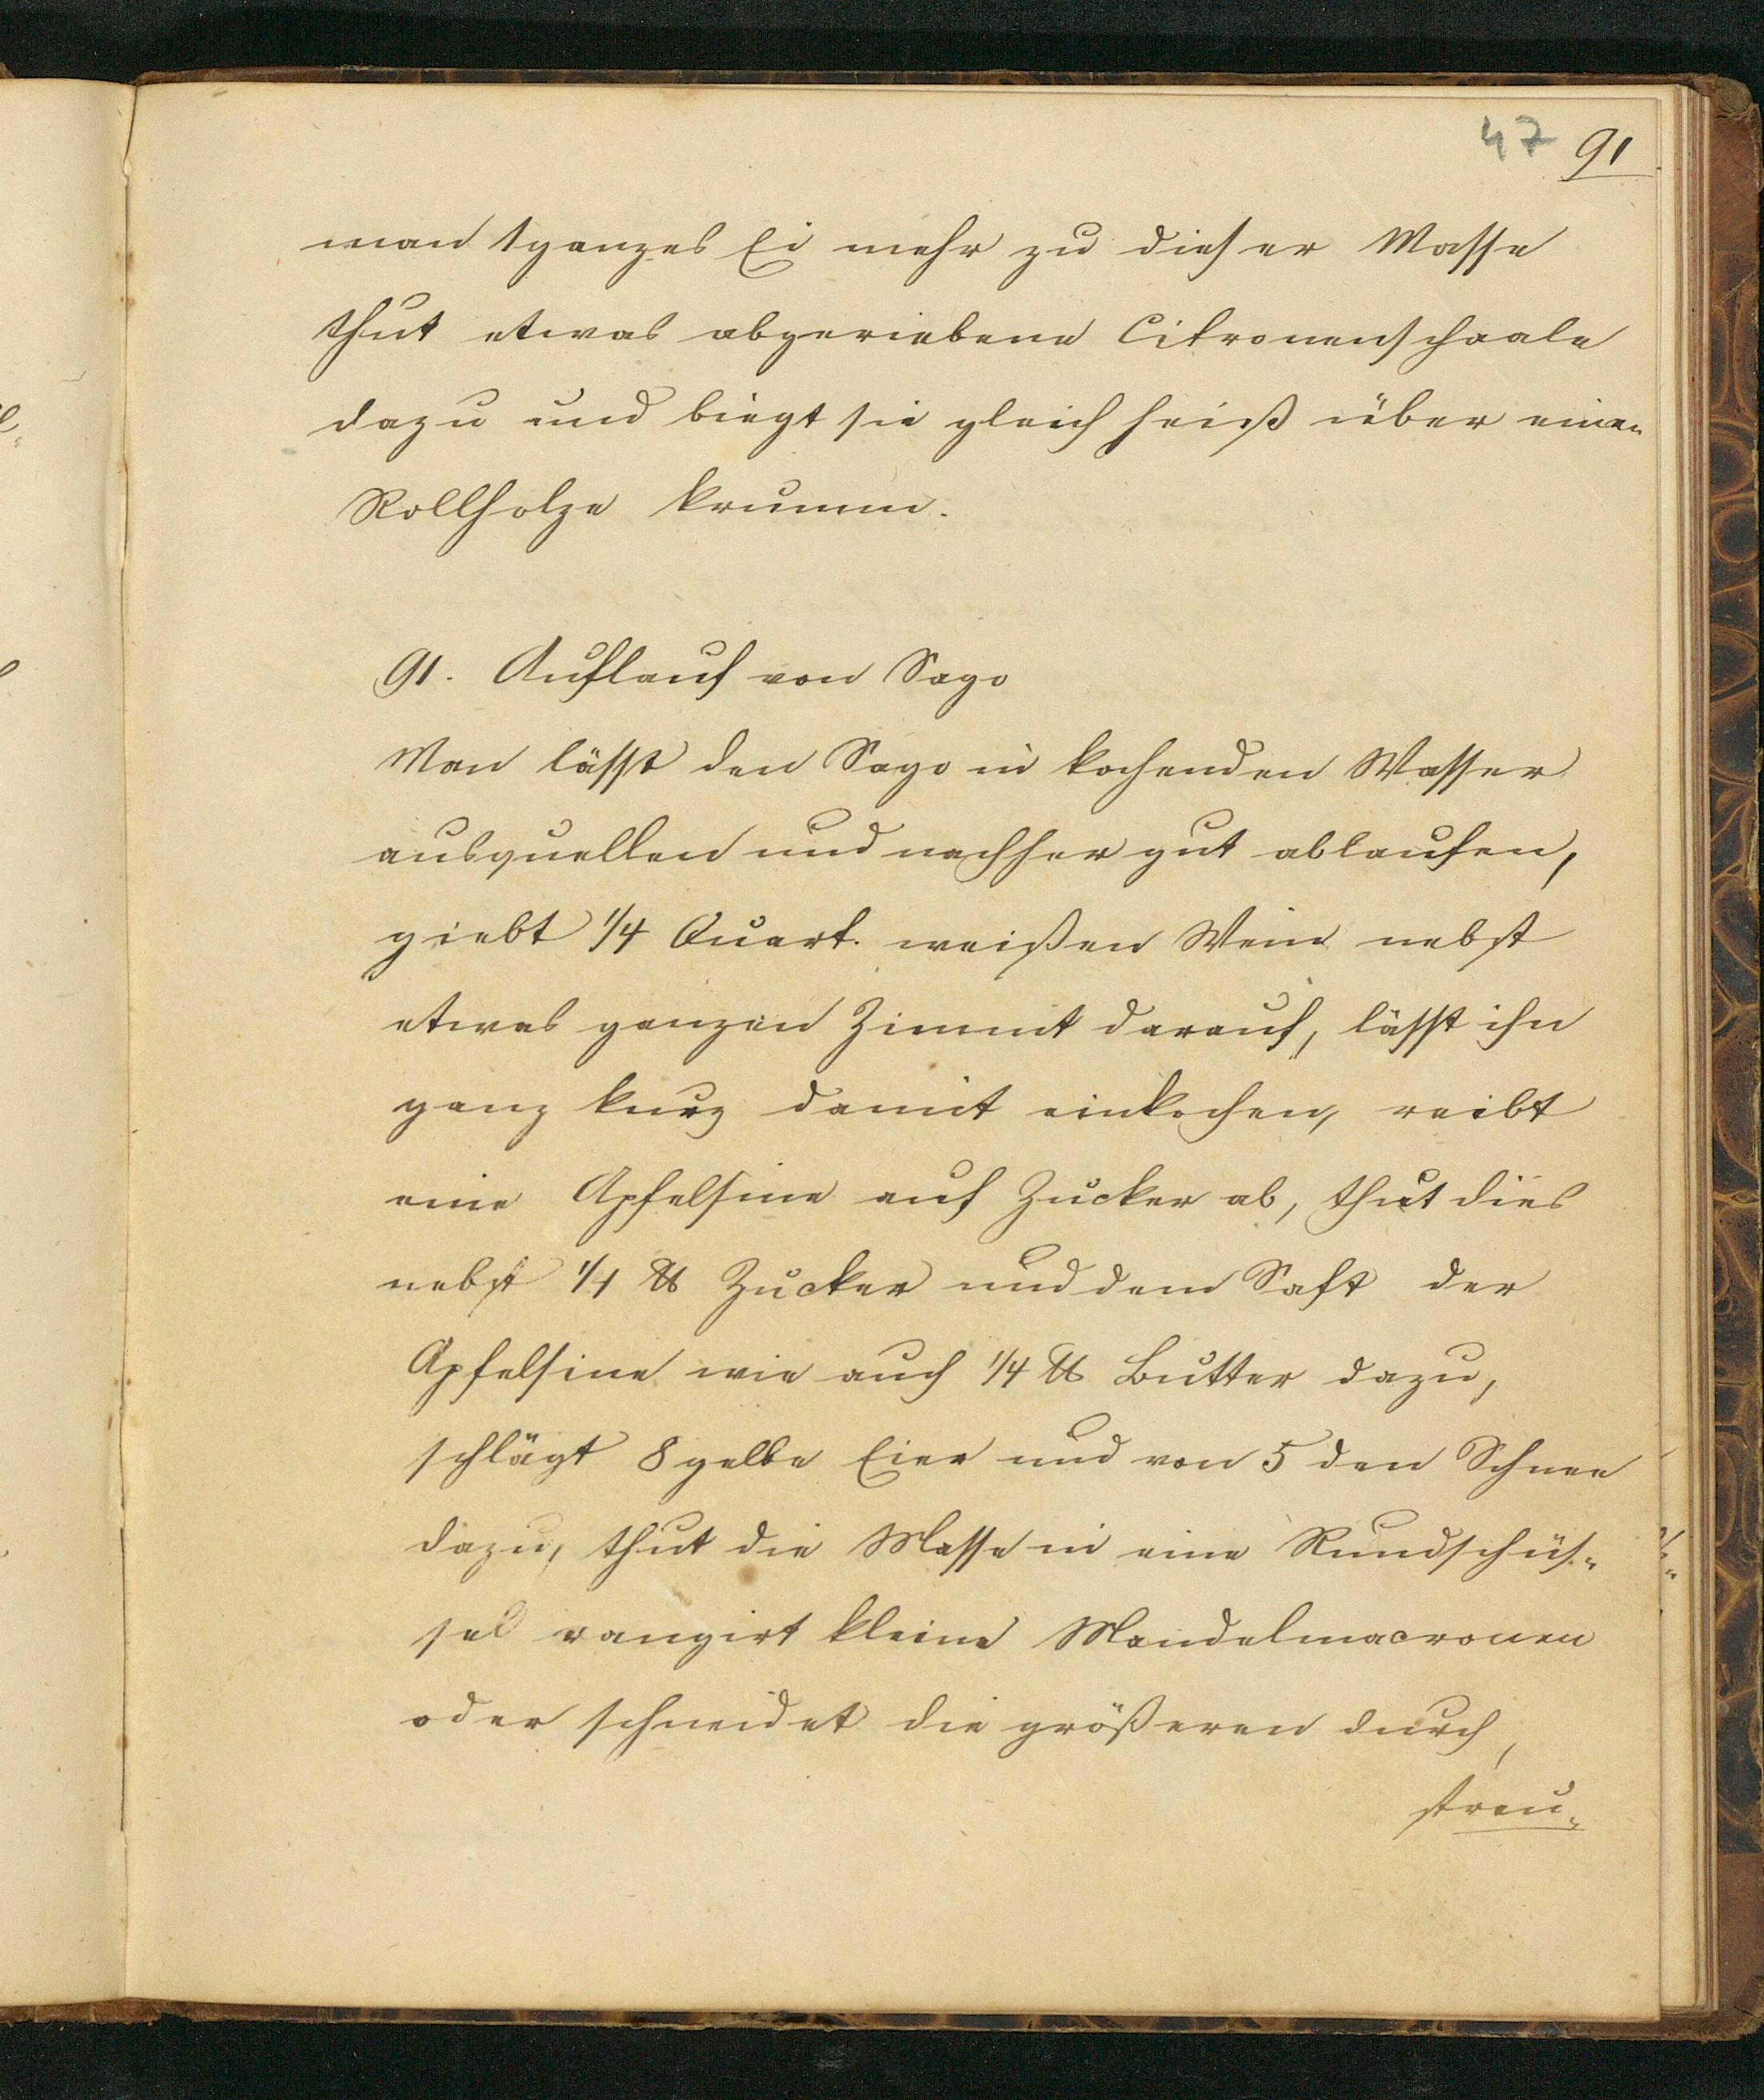 47 91
man 1 ganzes Ei mehr zu dieser Masse
thut etwas abgeriebene Citronenschaale
dazu und biegt sie gleich heiß über einen
Rollholze krumm.
91. Auflauf von Sago
Man lässt den Sago in kochenden Wasser
ausquellen und nachher gut ablaufen,
giebt 1/4 Quart. weißen Wein nebst
etwas ganzen Zimmt darauf, lässt ihn
ganz kurz damit einkochen, reibt
eine Apfelsine auf Zucker ab, thut dies
nebst 1/4 ℔ Zucker und dem Saft der
Apfelsine wie auch 1/4 ℔ Butter dazu,
schlägt 8 gelbe Eier und von 5 den Schnee
dazu, thut die Masse in eine Rundschüs„
sel rangirt kleine Mandelmacronen
oder schneidet die größeren durch,
streu„